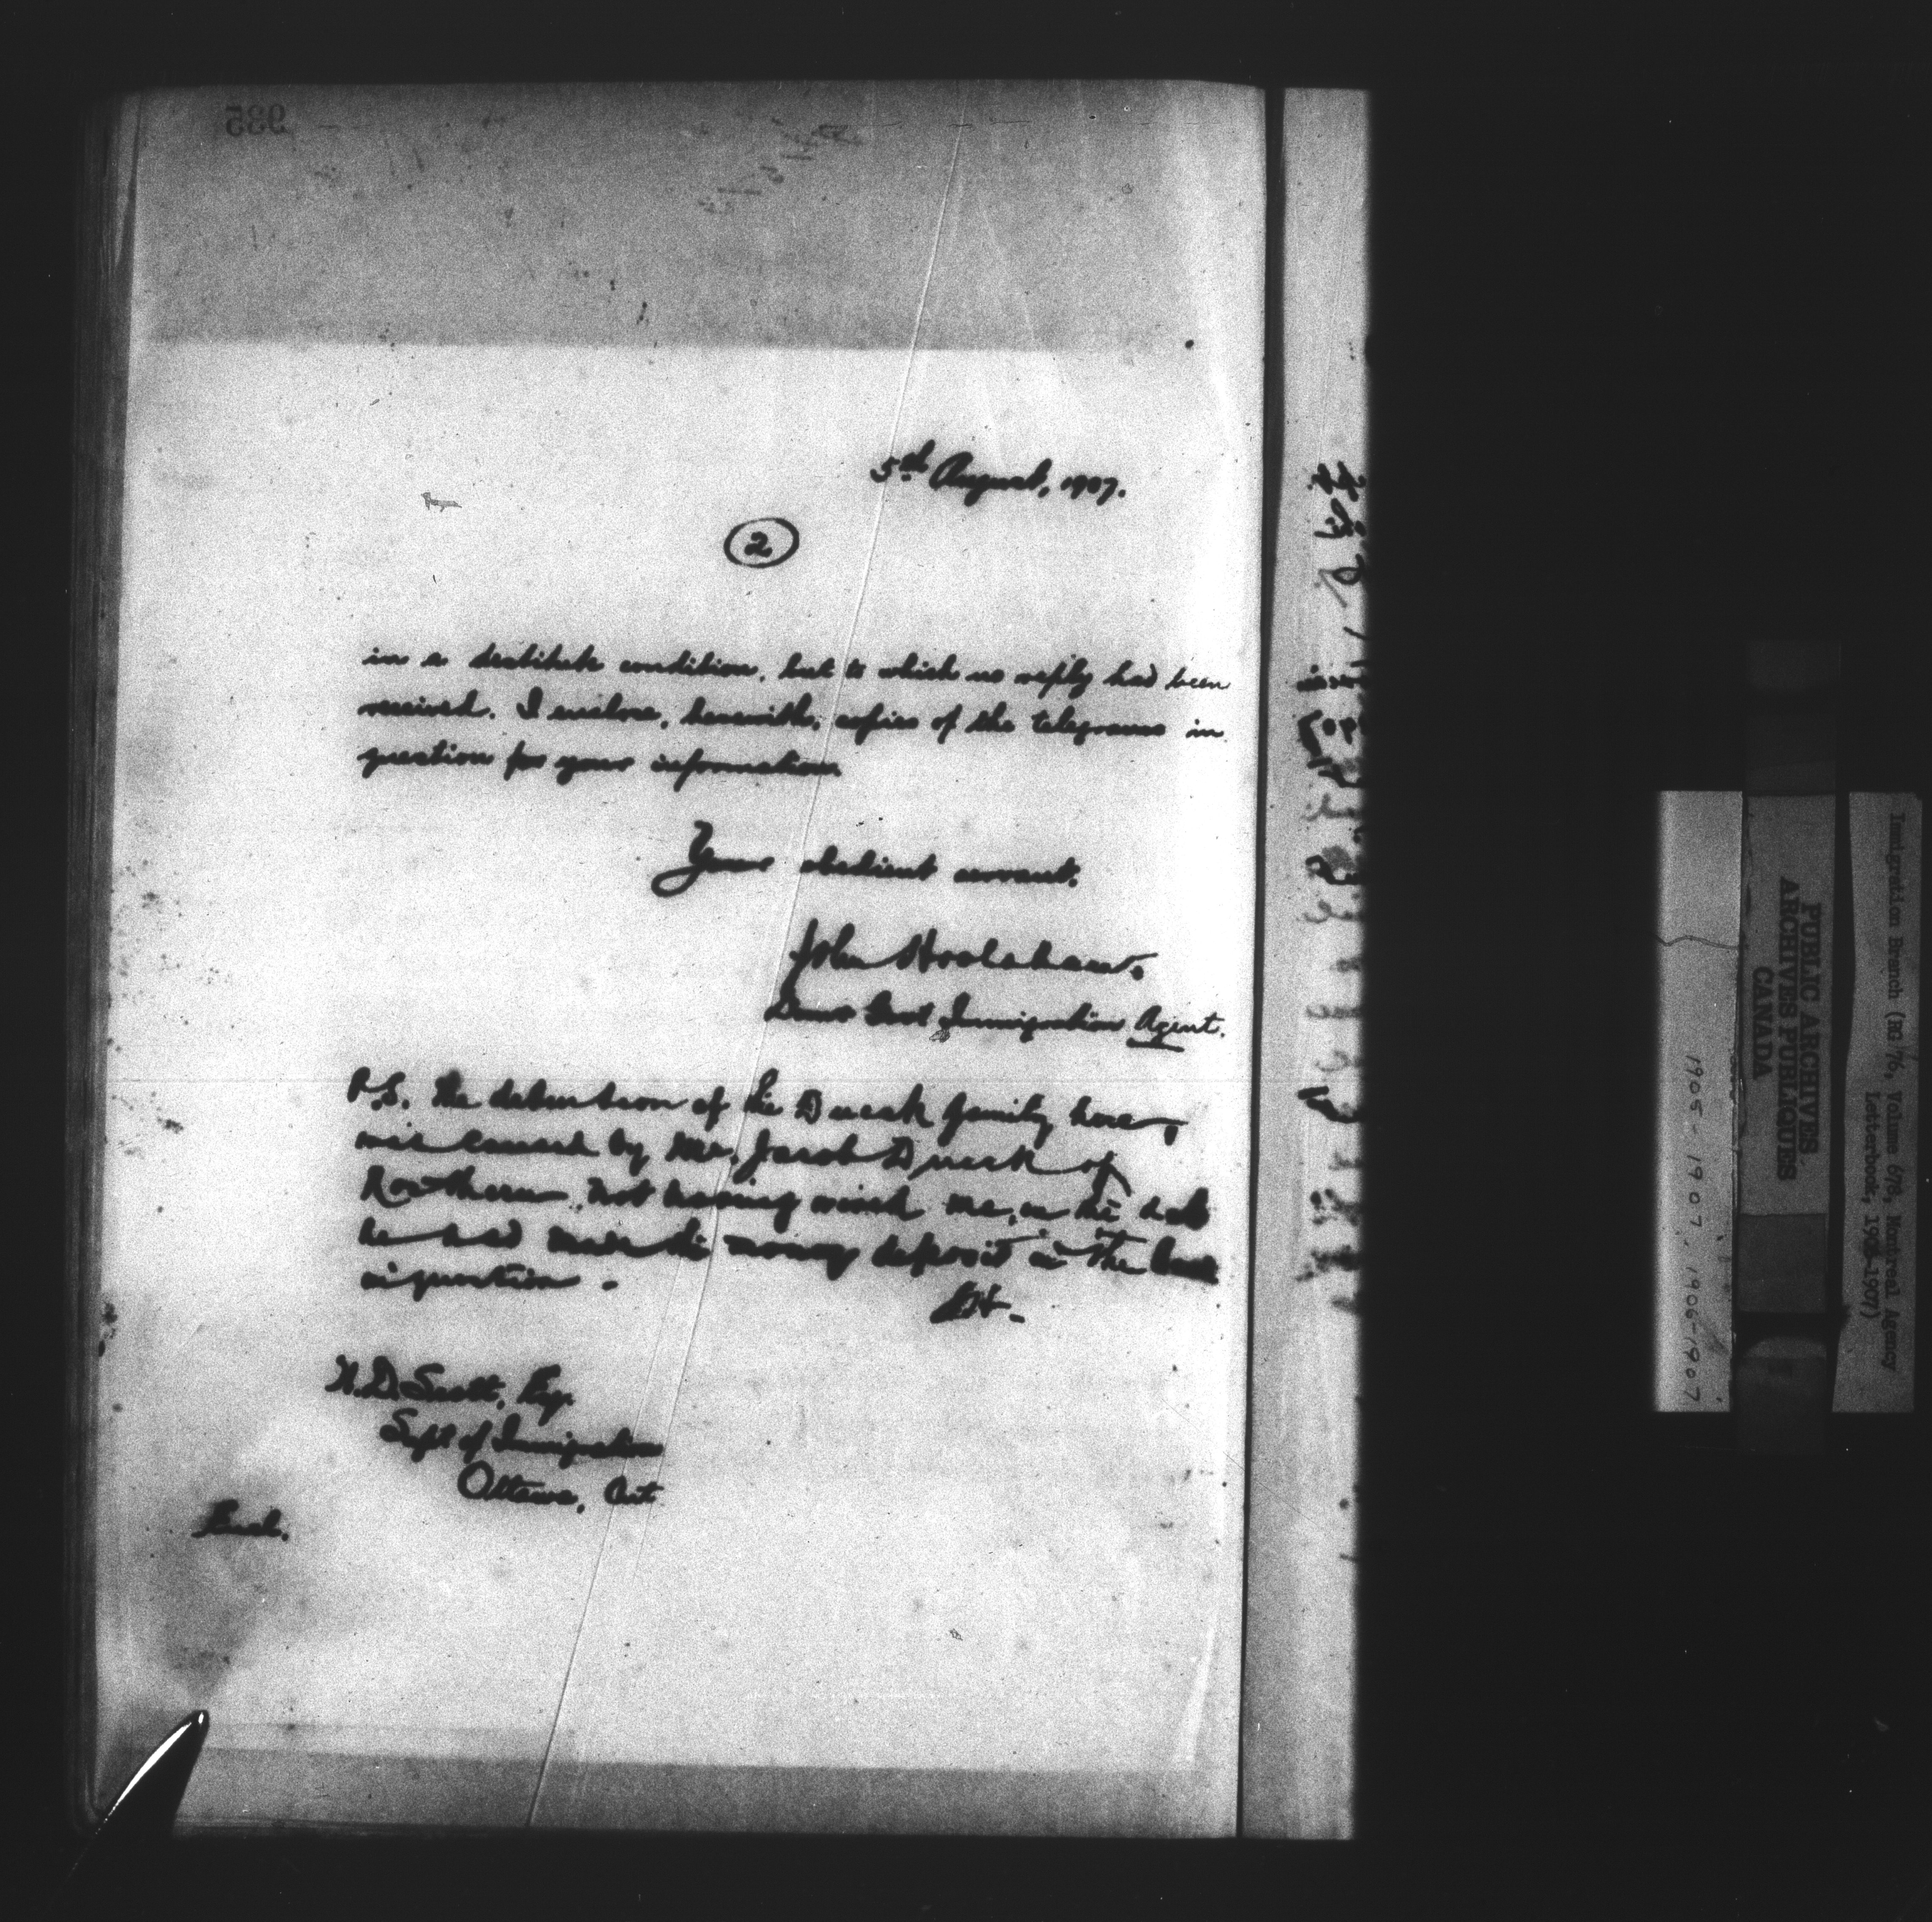 985
5th August, 1907.
2
in a destitute condition, but to which no reply had been
received. I enclose, herewith, copies of the telegrams in
question for your information.
Your obedient servant,
John Hoolahan,
Domn Govt Immigration Agent.
P.S. The detention of the Dueck family here,
was caused by Mr. Jacob Dueck of
Rosthern, not having wired me, that
he had made the money deposit in the bank
in question.
JH.
W.D. Scott, Esq.
Supt of Immigration
Ottawa, Ont
Encl.
1905-1907, 1906-1907
PUBLIC ARCHIVES
ARCHIVES PUBLIQUES
CANADA
Immigration Branch (RG 76, Volume 678, Montreal Agency
Letterbook, 1905-1907)